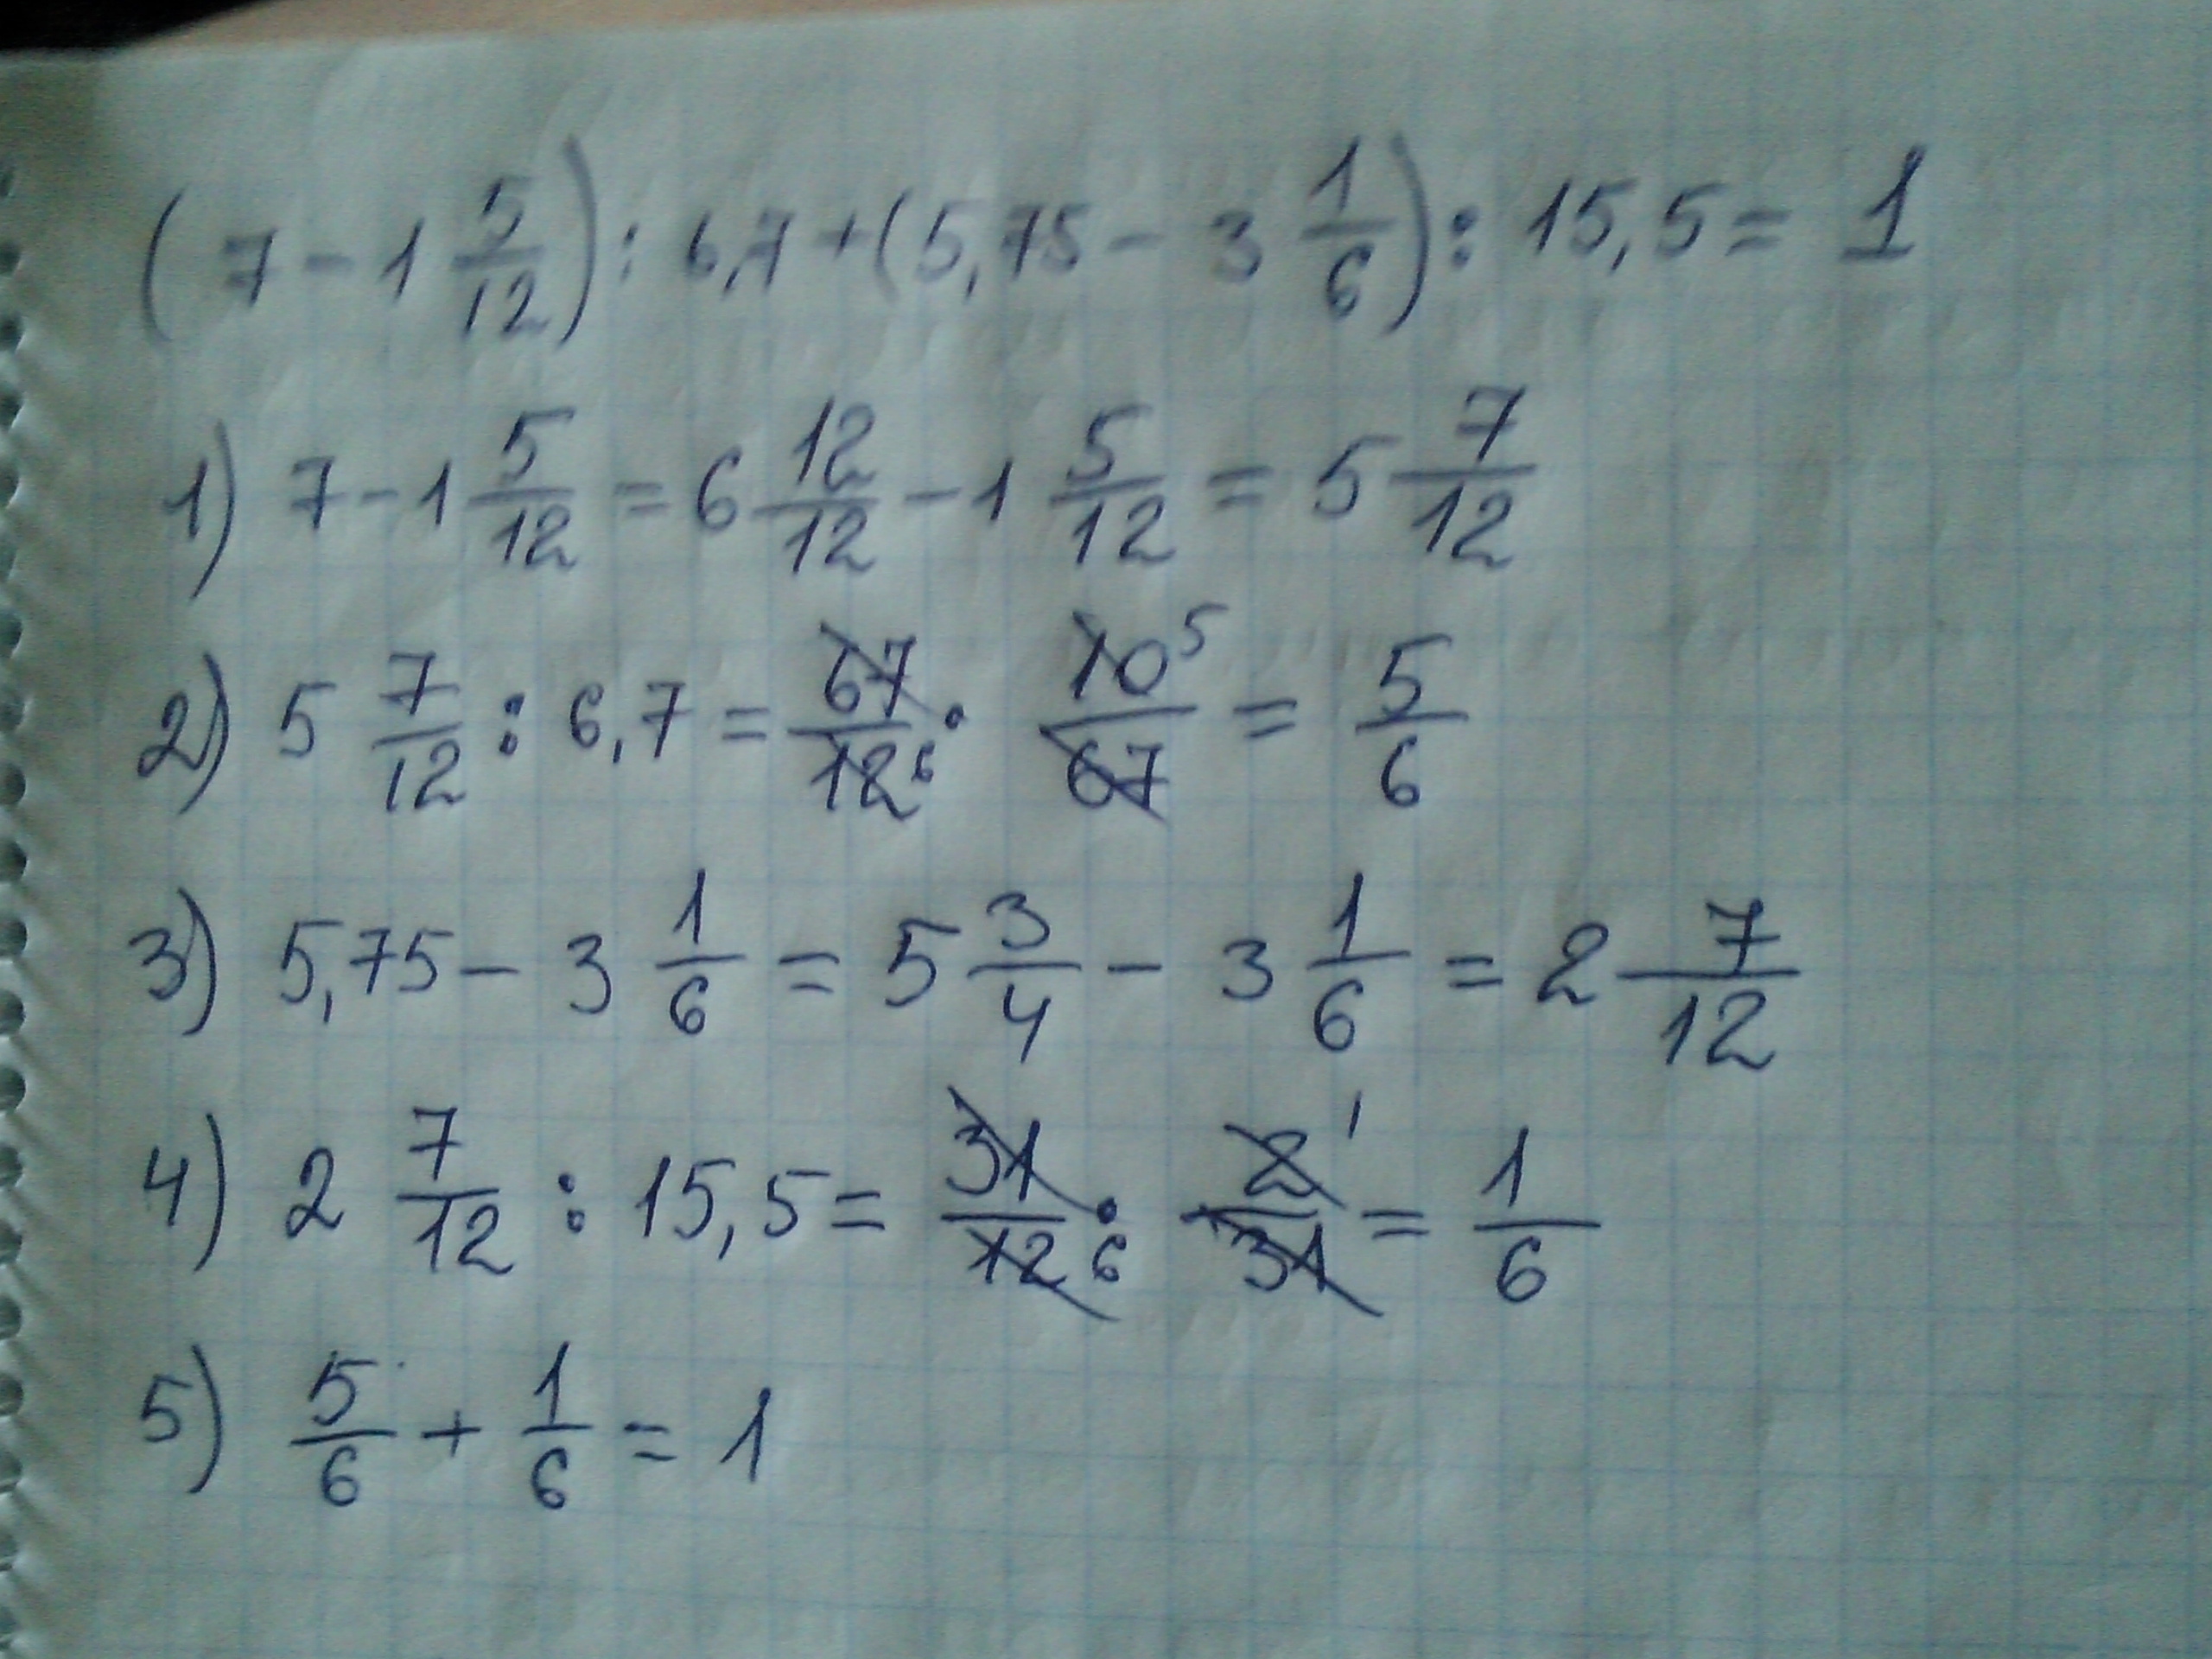 (7 - 1 5/12) : 6,7 + (5,75 - 3 1/6) : 15,5 = 1
1) 7 - 1 5/12 = 6 12/12 - 1 5/12 = 5 7/12
2) 5 7/12 : 6,7 = 67/12 6 · 10 5/67 = 5/6
3) 5,75 - 3 1/6 = 5 3/4 - 3 1/6 = 2 7/12
4) 2 7/12 : 15,5 = 31/12 6 · 2 1/31 = 1/6
5) 5/6 + 1/6 = 1